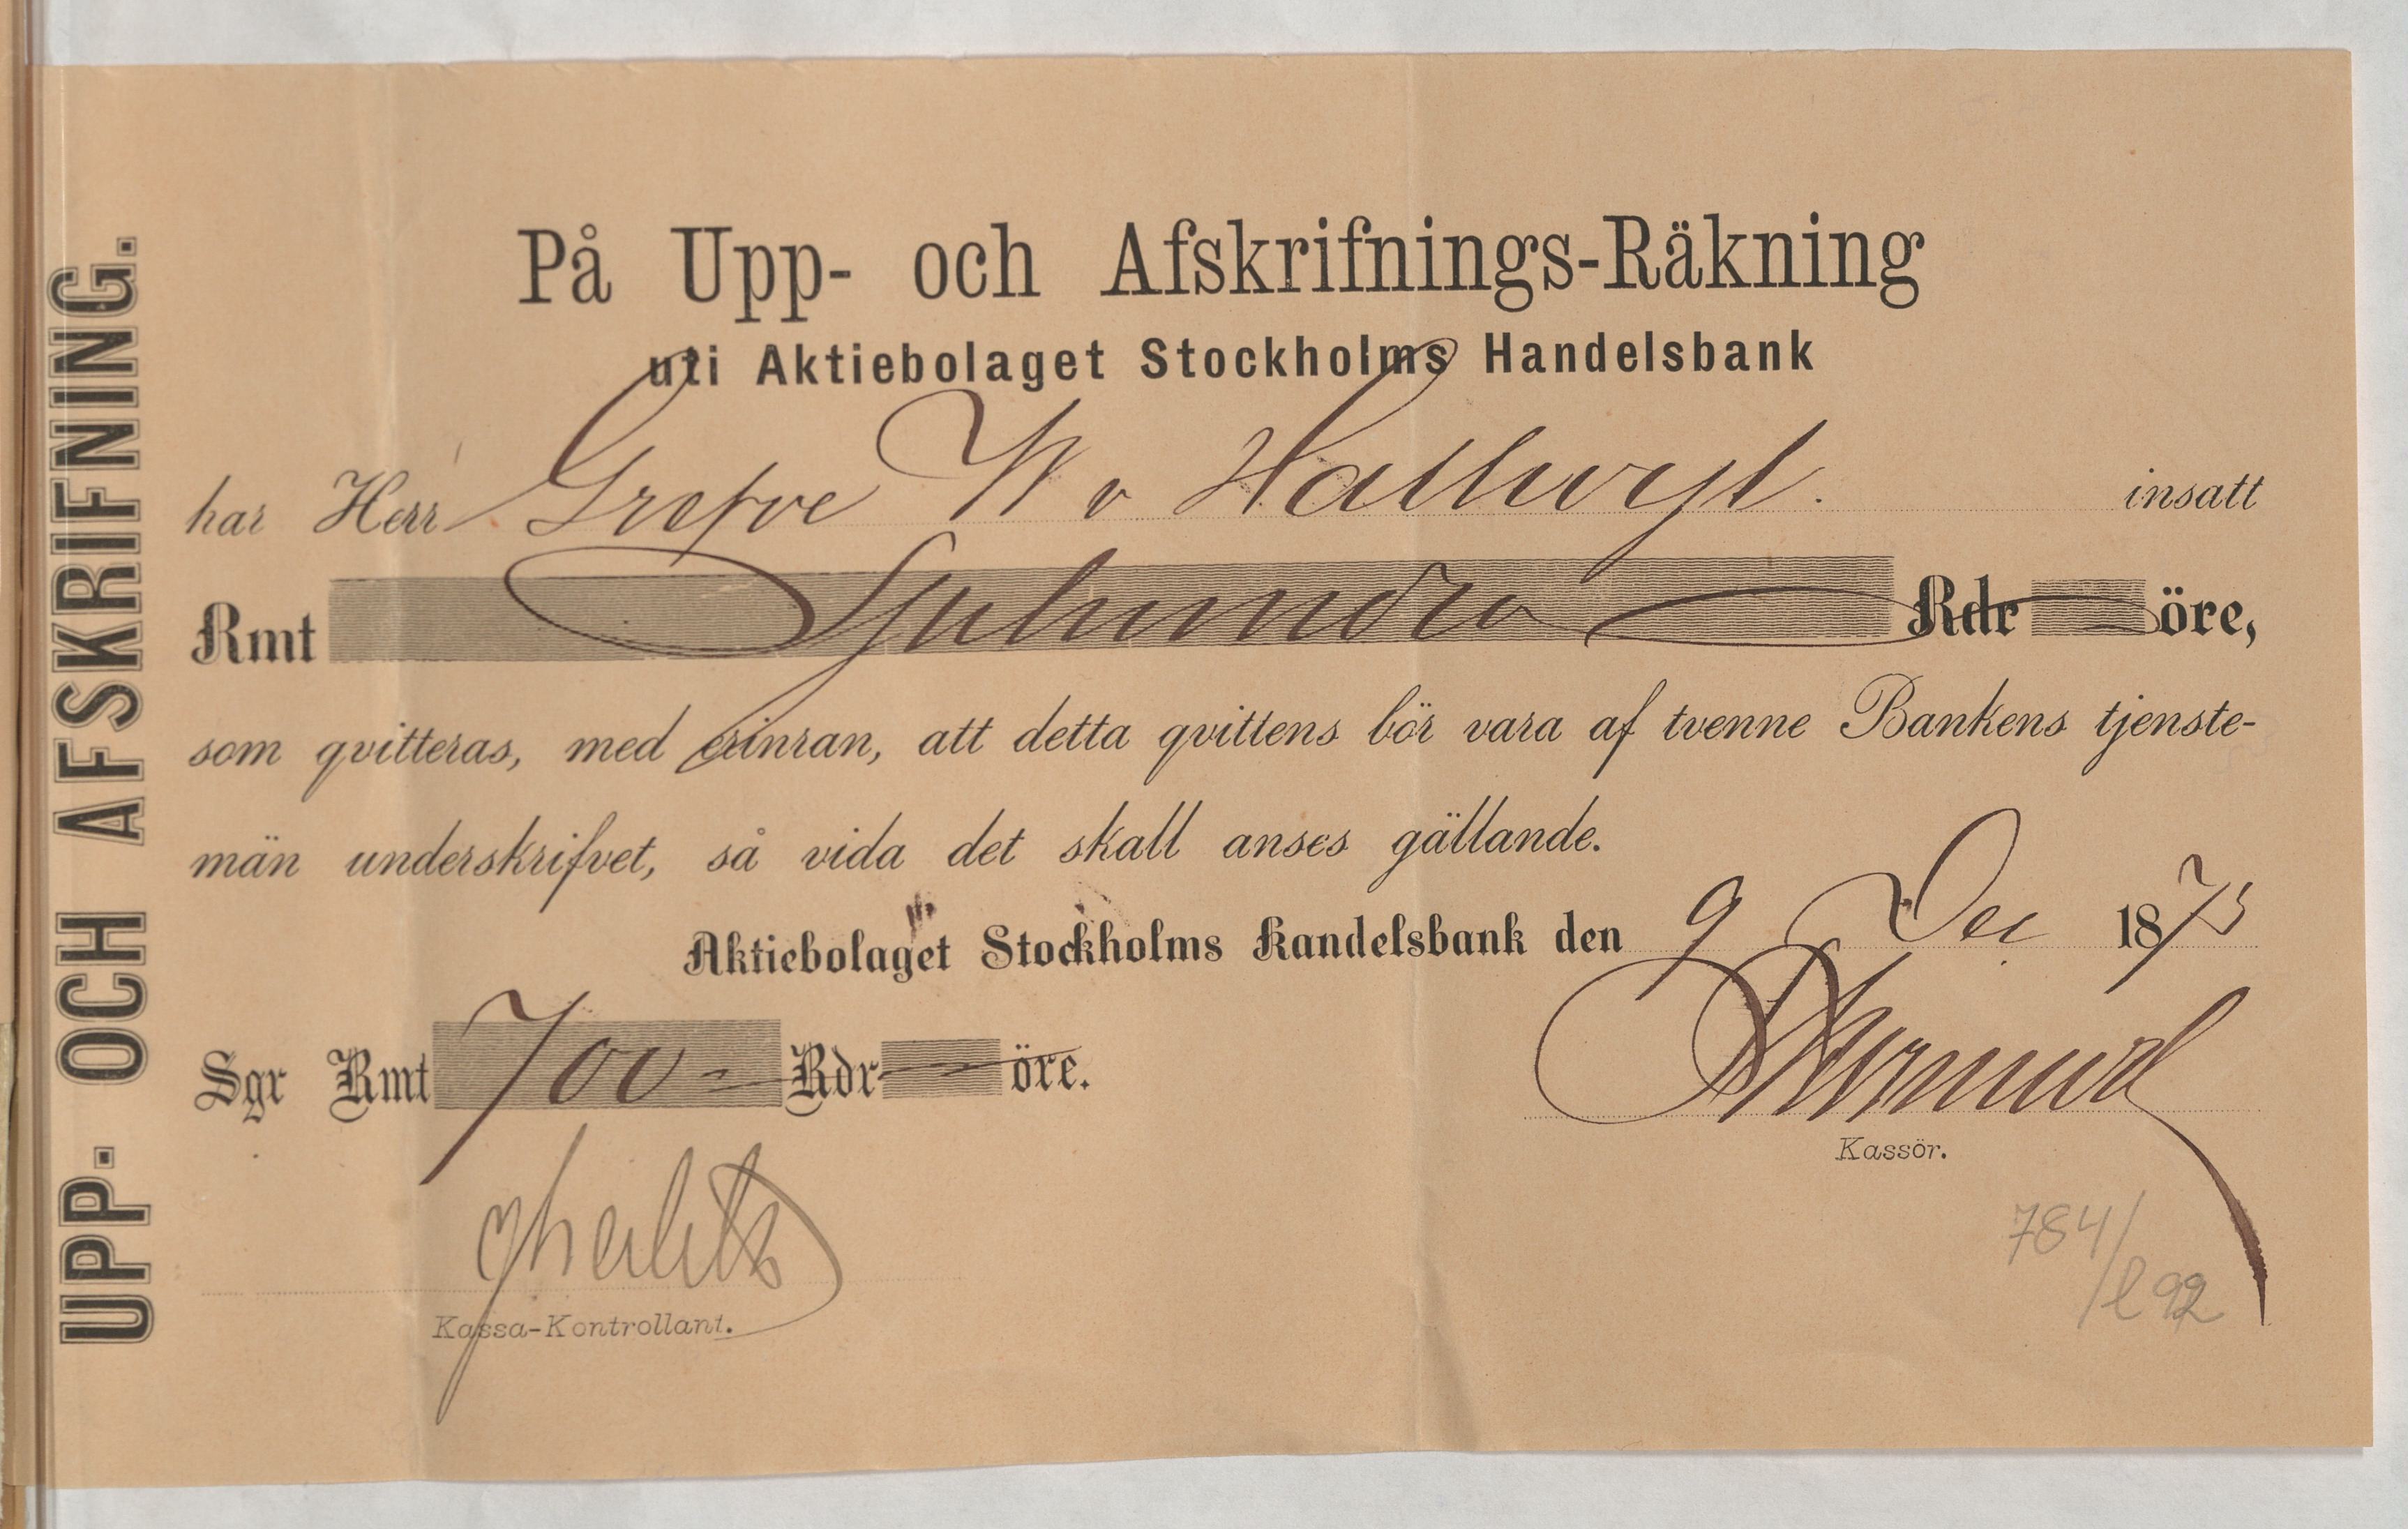 UPP- OCH AFSKRIFNING.
På Upp- och Afskrifnings-Räkning
uti Aktiebolaget Stockholms Handelsbank
har Herr Grefve W v Hallwyl. insatt
Rmt Sjuhundra Rdr — öre,
som qvitteras, med erinran, att detta qvittens bör vara af tvenne Bankens tjenste-
män underskrifvet, så vida det skall anses gällande.
Aktiebolaget Stockholms Handelsbank den 9 Dec 1873
Sgr Rmt 700 – Rdr — öre.
Kassör.
Kassa-Kontrollant.
784/